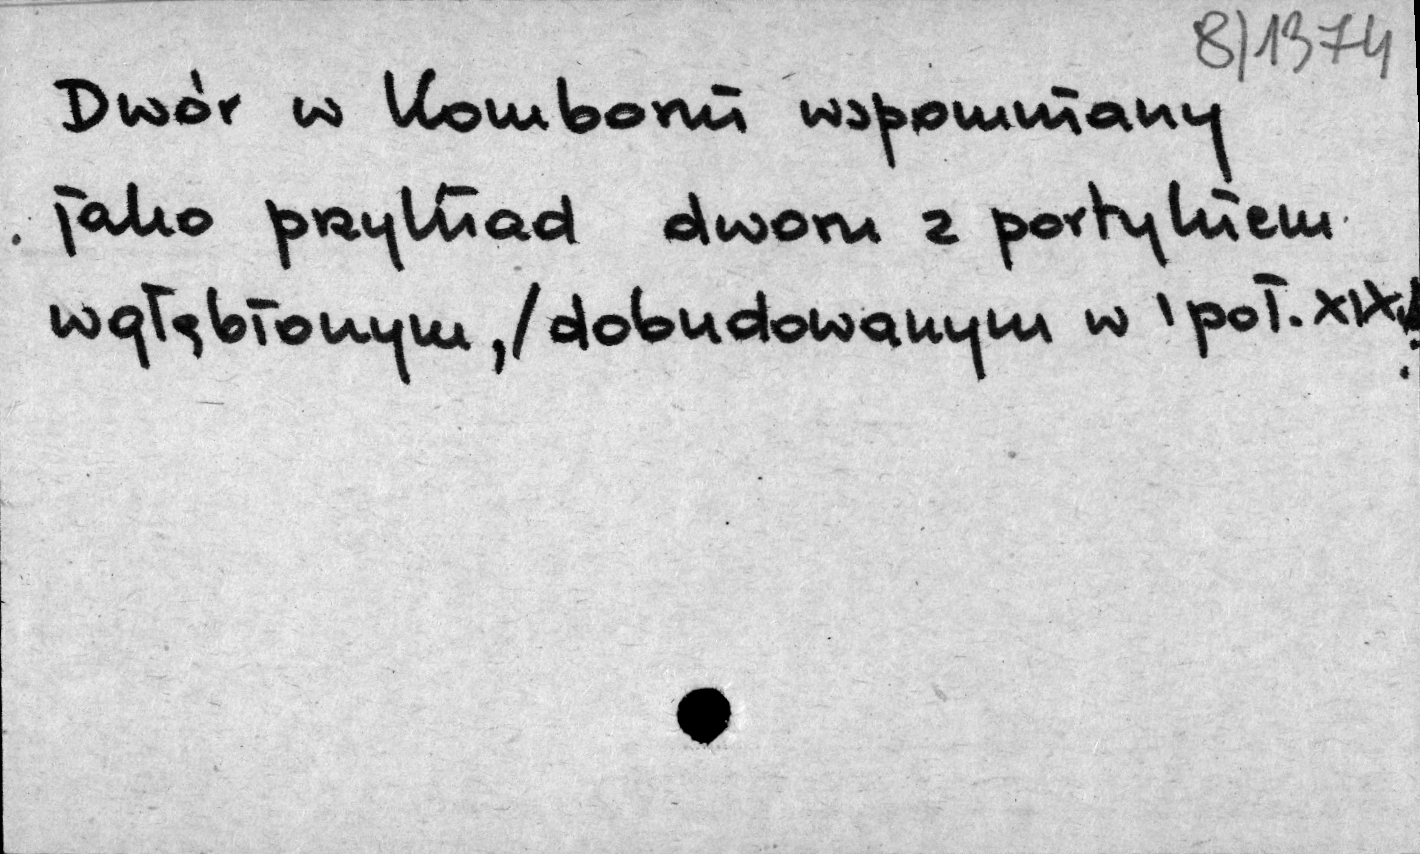 8/1374
Dwór w Komborni wspomniany
jako przykład dworu z portykiem
wgłębionym, /dobudowanym w 1 poł. XIX w.